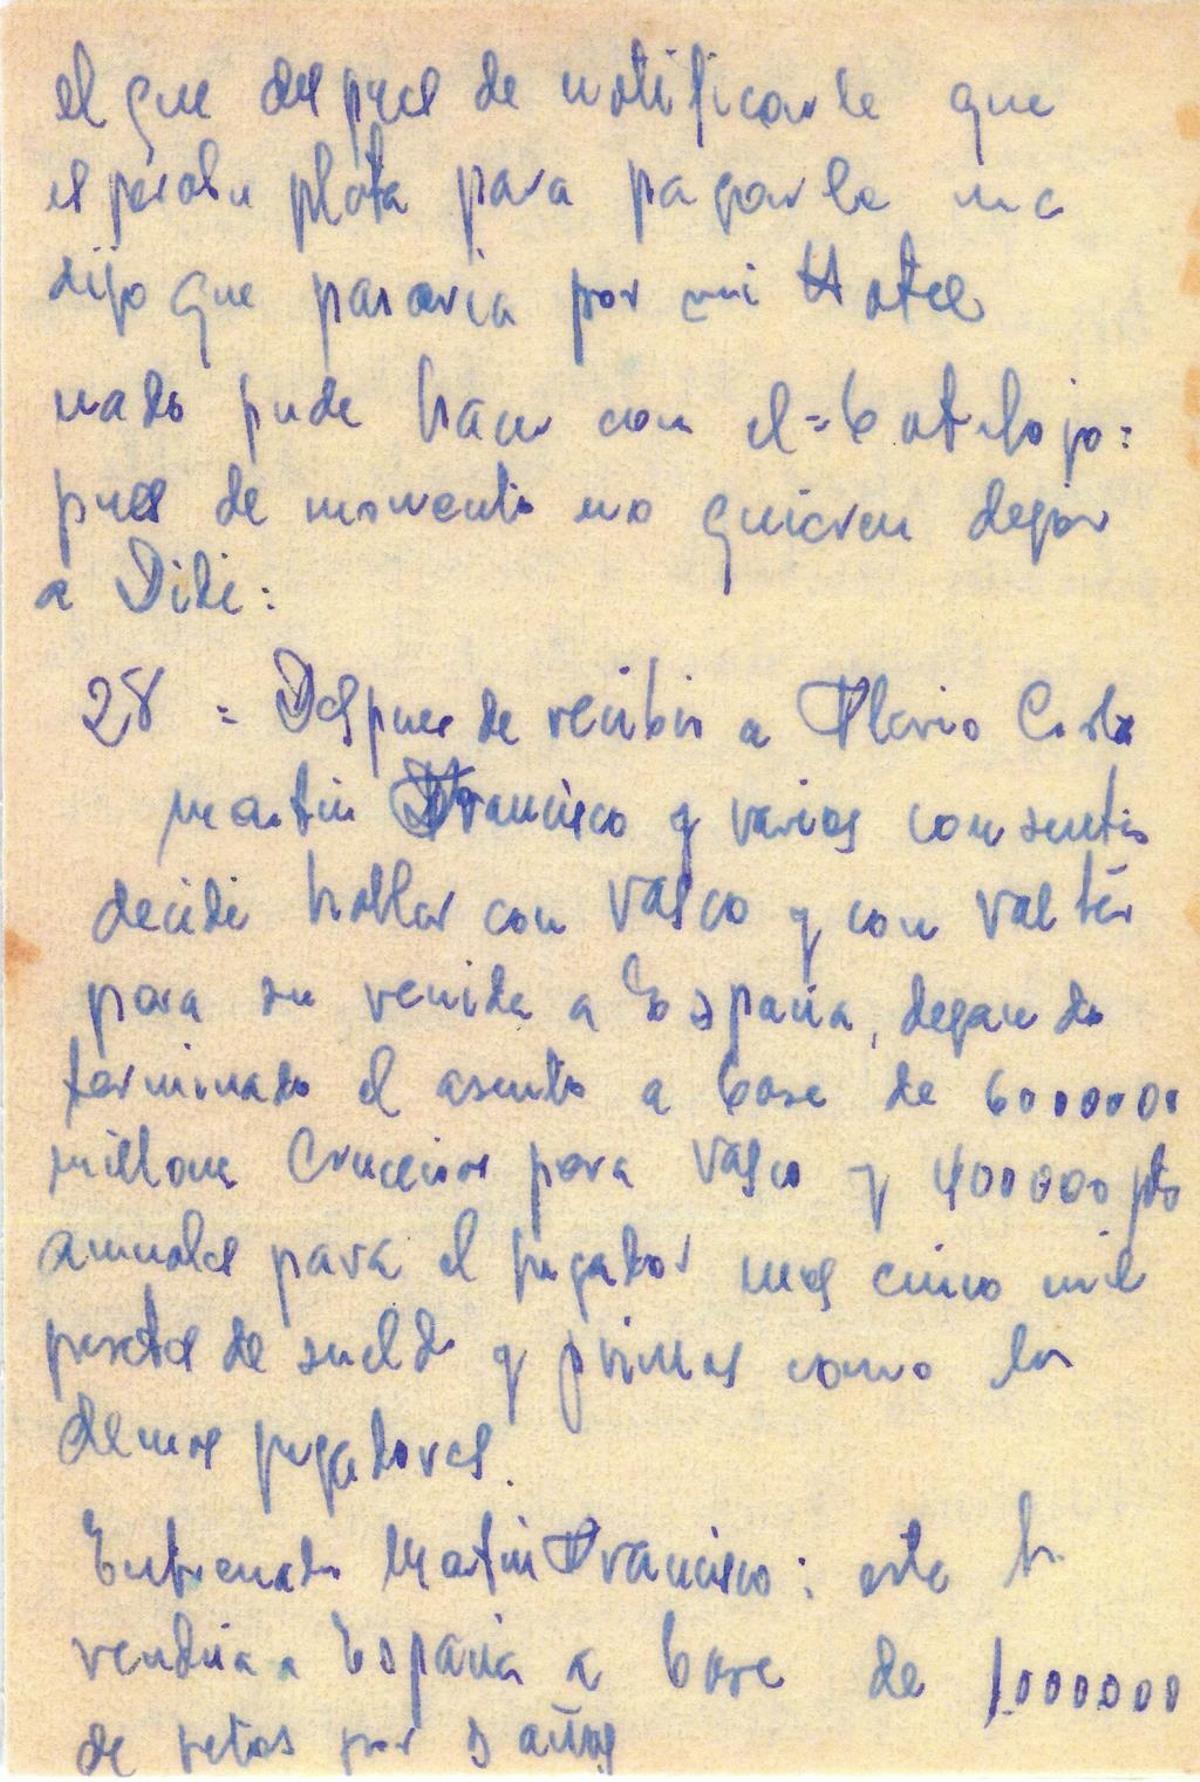 el que despues de notificarle que
esperaba plata para pagarle me
dijo que pasaria por mi Hotel
nada pude hacer con el = Botafogo =
pues de momento no quieren degar
a Didi =
28 = Despues de recibir a Flavio Costa
Martin Francisco y varios consentis
decidi hablar con Vasco y con Valter
para su venida a España, degando
terminado el asunto a base de 6000000
millone Cruceiros para Vasco y 400000 pts
anuales para el jugador mas cinco mil
pesetas de sueldo y primas como los
demas jugadores.
Entrenador Martin Francisco : este
vendria a España a base de 1.000000
de petas por años